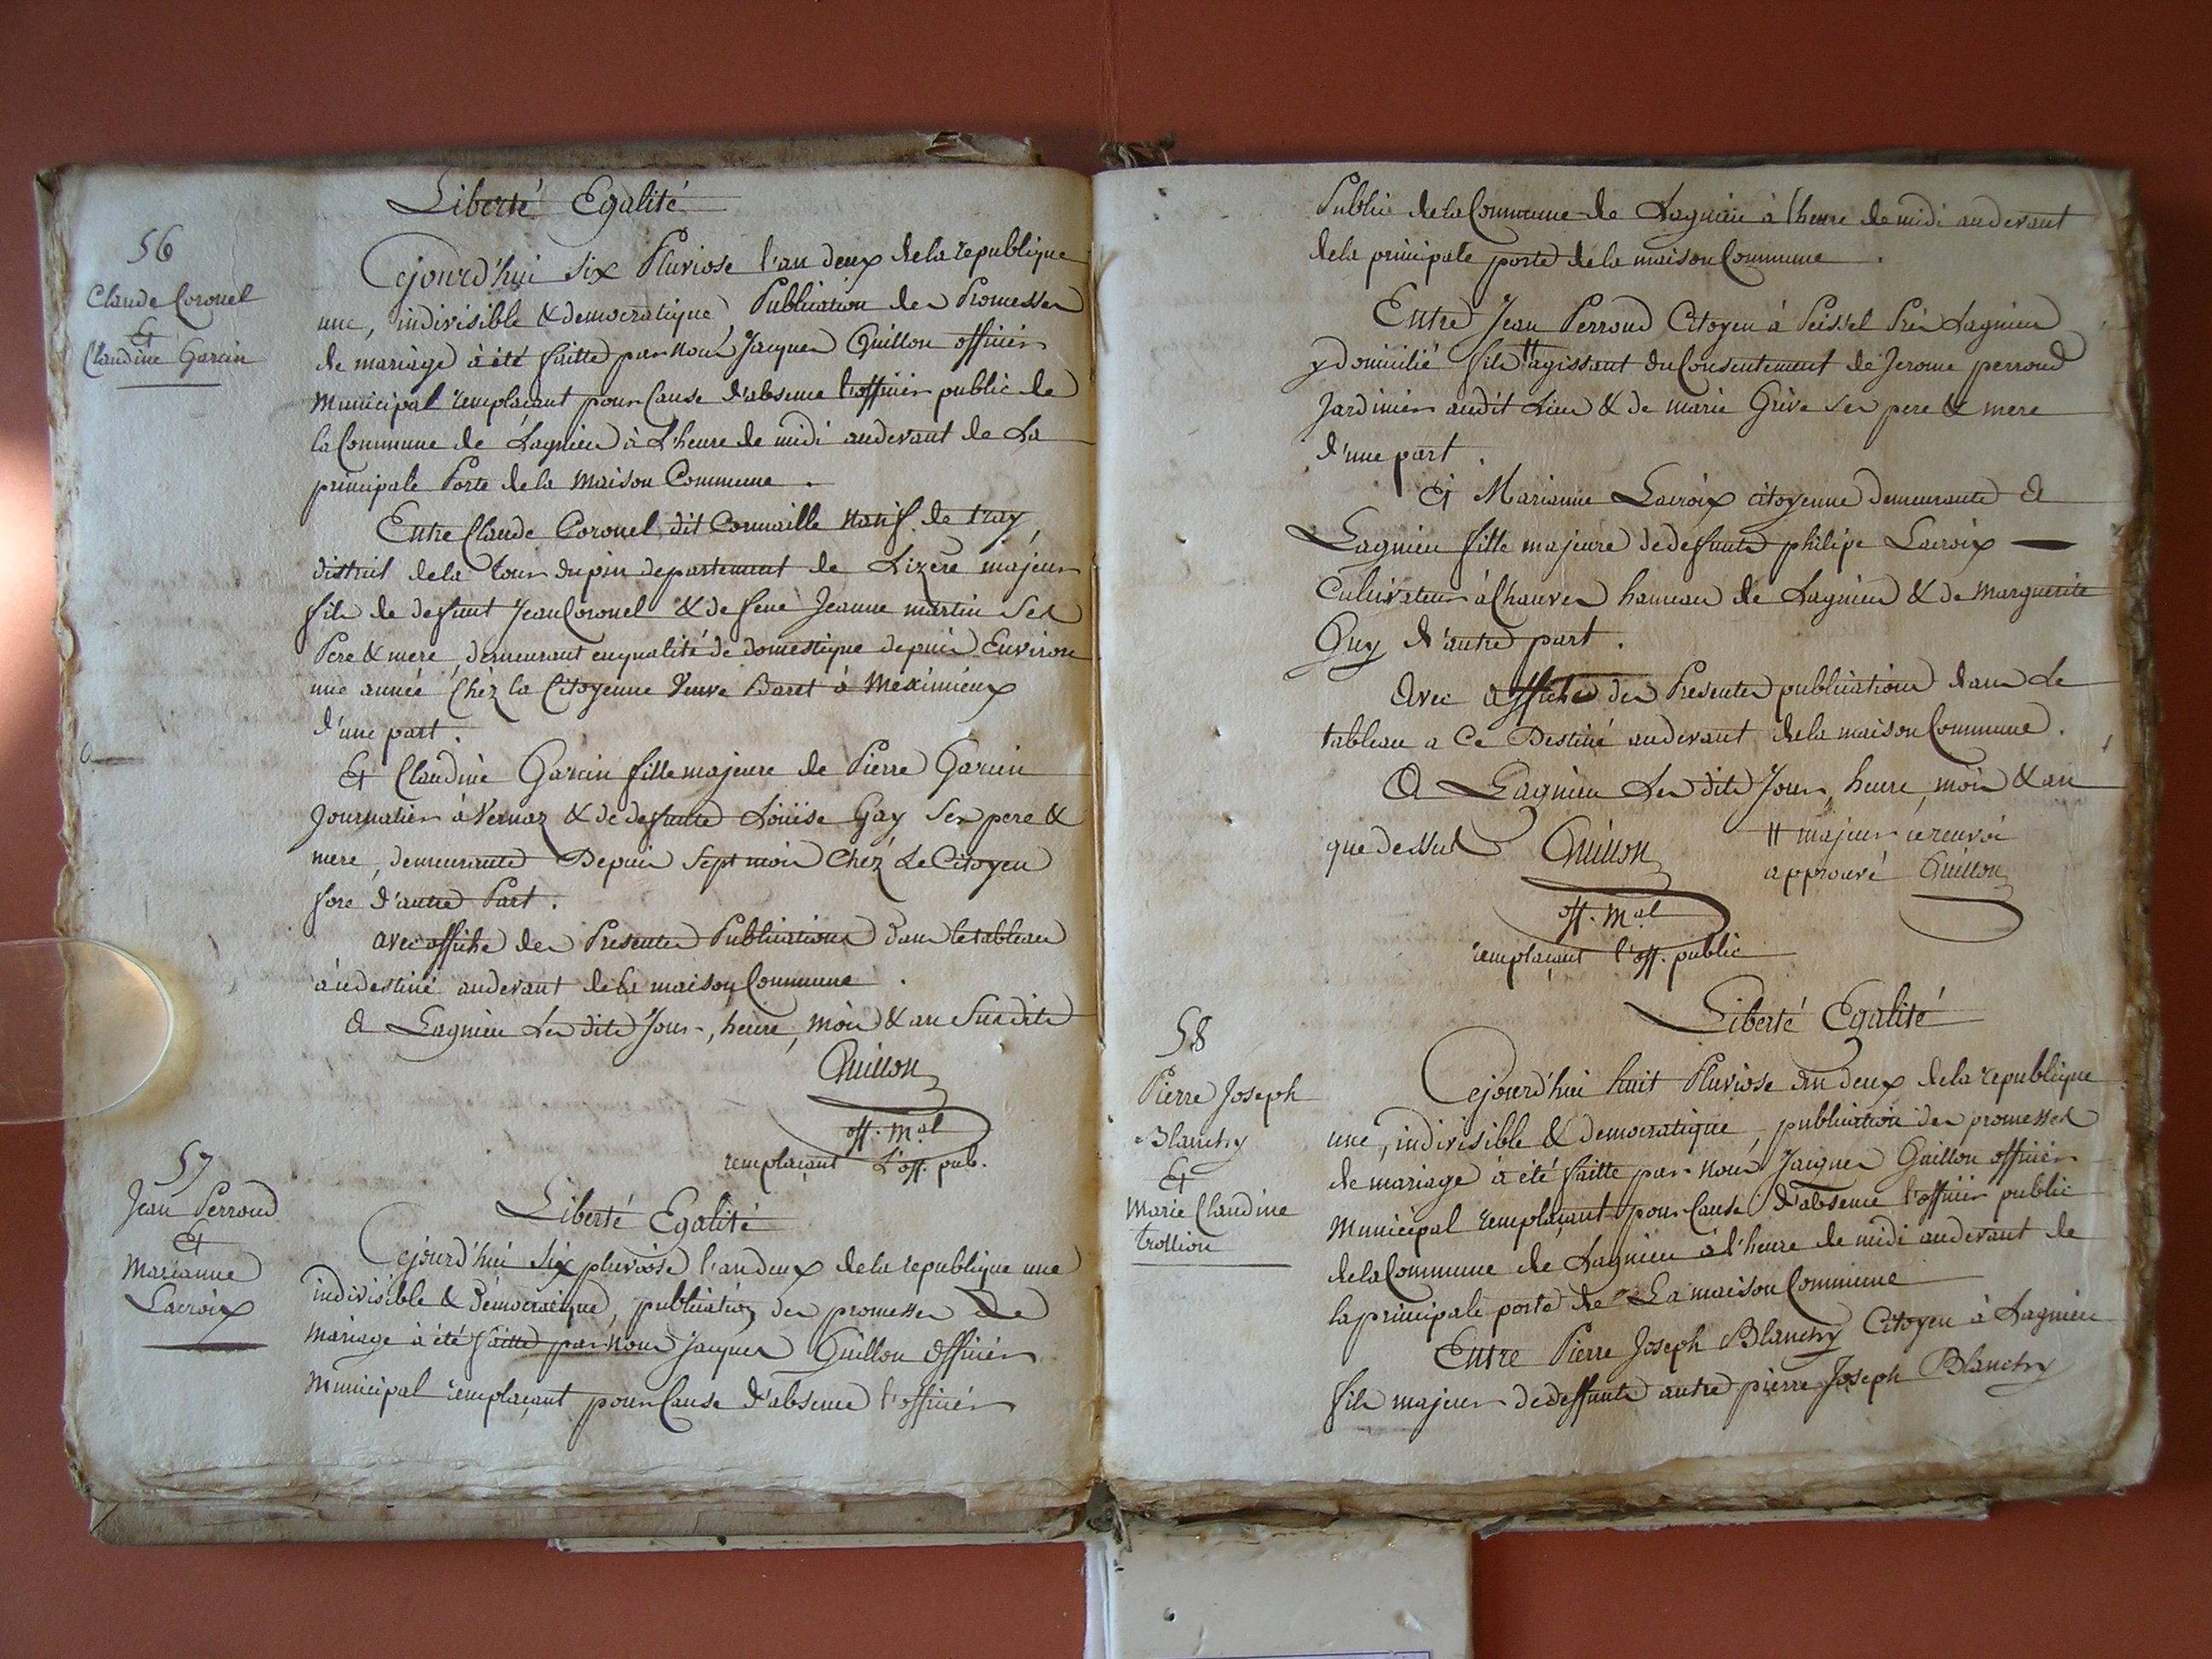 Liberté Egalité
56
Claude Coronel
Et
Claudine Garcin
Cejourd'hui six Pluviose l'an deux de la republique
une, indivisible & democratique Publication des Promesses
de mariage à été faitte par nous Jacques Guillon officier
Municipal remplaçant pour Cause d'absence l'officier public de
la Commune de Lagnieu à L'heure de midi audevant de La
principale Porte de la Maison Commune.
Entre Claude Coronel, dit Connaille natif de
district de la tour dupin departement de Lizère majeur
fils de defunt Jean Coronel & de feue Jeanne martin Ses
Pere & mere, demeurant en qualité de domestique depuis Environ
une année Chéz la Citoyenne Veuve Baret à Meximieux
d'une part.
Et Claudine Garcin fille majeure de Pierre Garcin
Journalier à Vernaz & de defunte Loüise Gay Ses pere &
mere, demeurante Depuis Sept mois Chéz Le Citoyen
fore d'autre Part.
avec affiche des Presentes Publications dans le tableau
à ce destiné audevant de la maison Commune.
A Lagnieu Les dits Jour, heure, mois & an Susdits
Guillon
off. Mal
remplaçant L'off. pub.
57
Jean Perroud
Et
Marianne
Lacroix
Liberté Egalité
Cejourd'hui Six pluviôse l'an deux de la republique une
indivisible & démocratique, publication des promesses de
mariage à été faitte par nous Jacques Guillon officier
Municipal remplaçant pour Cause d'absence l'officier
Public de la Commune de Lagnieu à l'heure de midi audevant
de la principale porte de la maison Commune.
Entre Jean Perroud Citoyen à Peissel Près Lagnieu
y domicilié fils # agissant du Consentement de Jerome perroud
Jardinier audit Lieu & de marie Grève Ses pere & mere
d'une part.
Et Marianne Lacroix citoyenne demeurante à
Lagnieu fille majeure de defunts philipe Lacroix
Cultivateur à Chauves hameau de Lagnieu & de Marguerite
Guy d'autre part.
Avec affiches des Presentes publications dans Le
tableau a Ce Destiné audevant de la maison Commune.
A Lagnieu Les dits Jour, heure, mois & an
que dessus Guillon
# majeur ce renvoi
approuvé Guillon
off. Mal
remplaçant l'off. public
58
Pierre Joseph
Blanchy
Et
Marie Claudine
trollion
Liberté Egalité
Cejourd'hui huit Pluviose an deux de la republique
une, indivisible & democratique, publication des promesses
de mariage à été faitte par nous Jacques Guillon officier
Municipal remplaçant pour Cause d'absence l'officier public
de la Commune de Lagnieu à l'heure de midi audevant de
la principale porte de La maison Commune
Entre Pierre Joseph Blanchy Citoyen à Lagnieu
fils majeur de deffunts autre pierre Joseph Blanchy